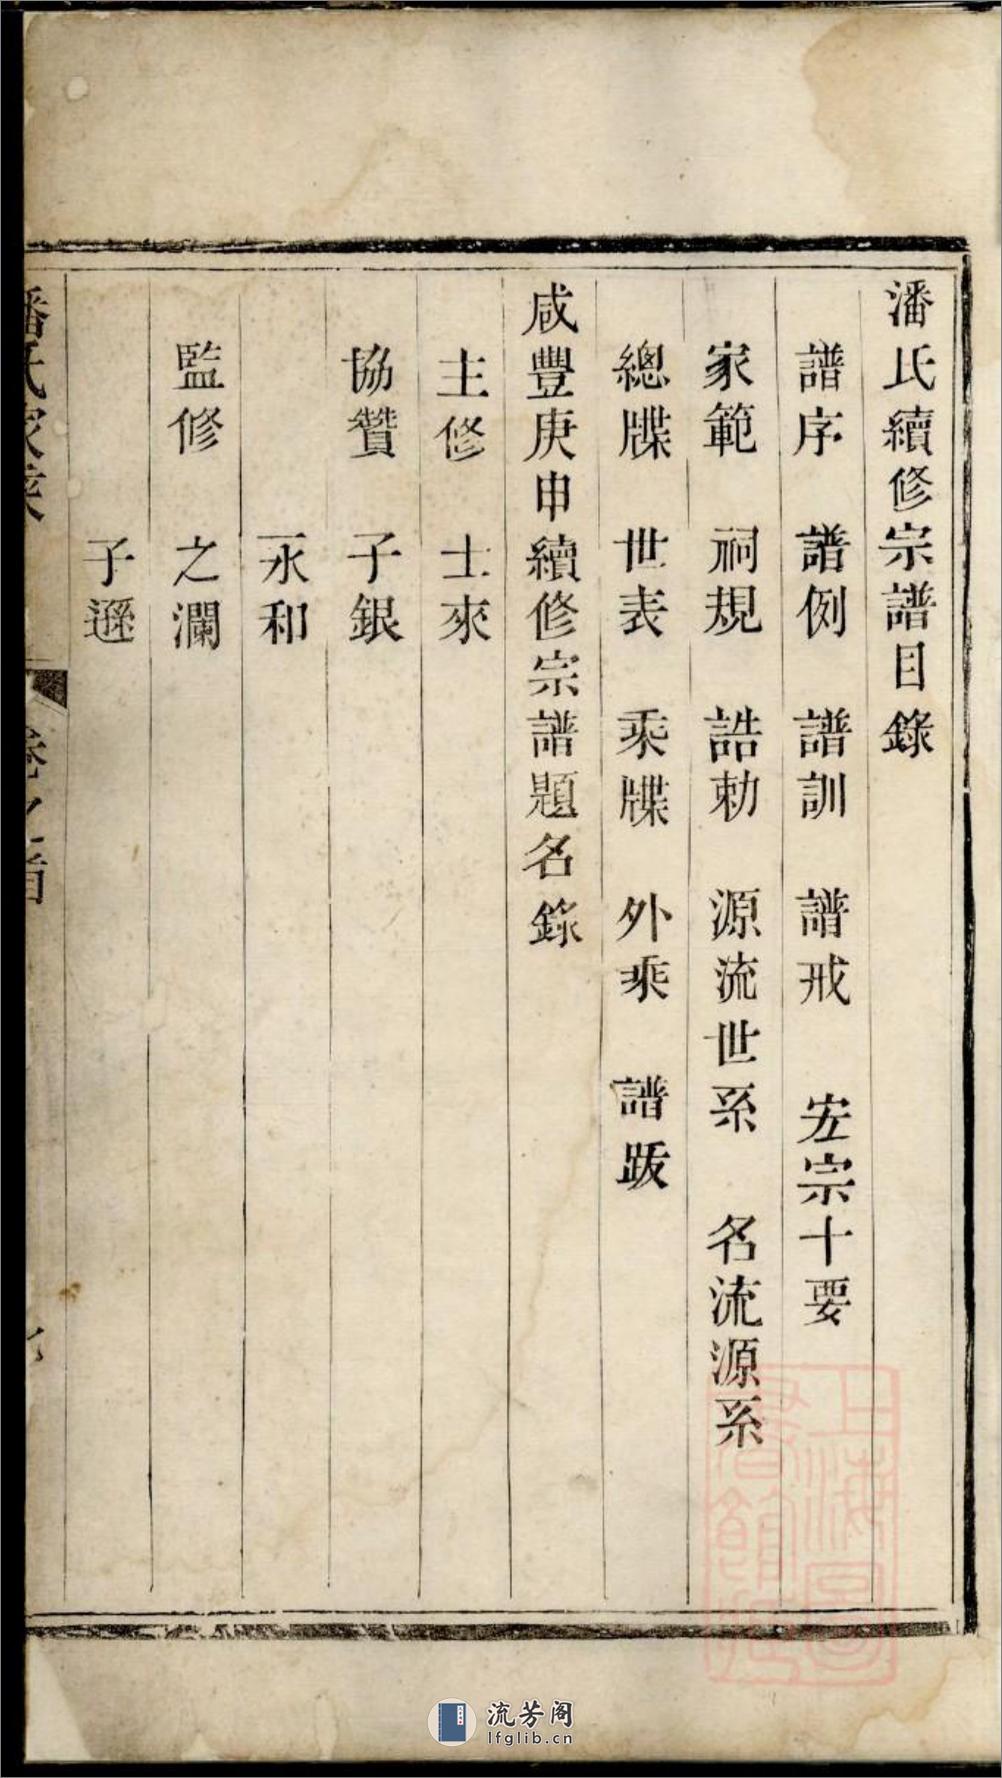 潘氏續修宗譜目錄
譜序 譜例 譜訓 譜戒 宏宗十要
家範 祠規 誥勅 源流世系 名流源系
總牒 世表 乘牒 外乘 譜跋
咸豐庚申續修宗譜題名錄
主修 士來
協贊 子銀
永和
監修 之瀾
子遜
潘氏家乘
卷之首
上海圖書館藏
流芳阁
lfglib.cn